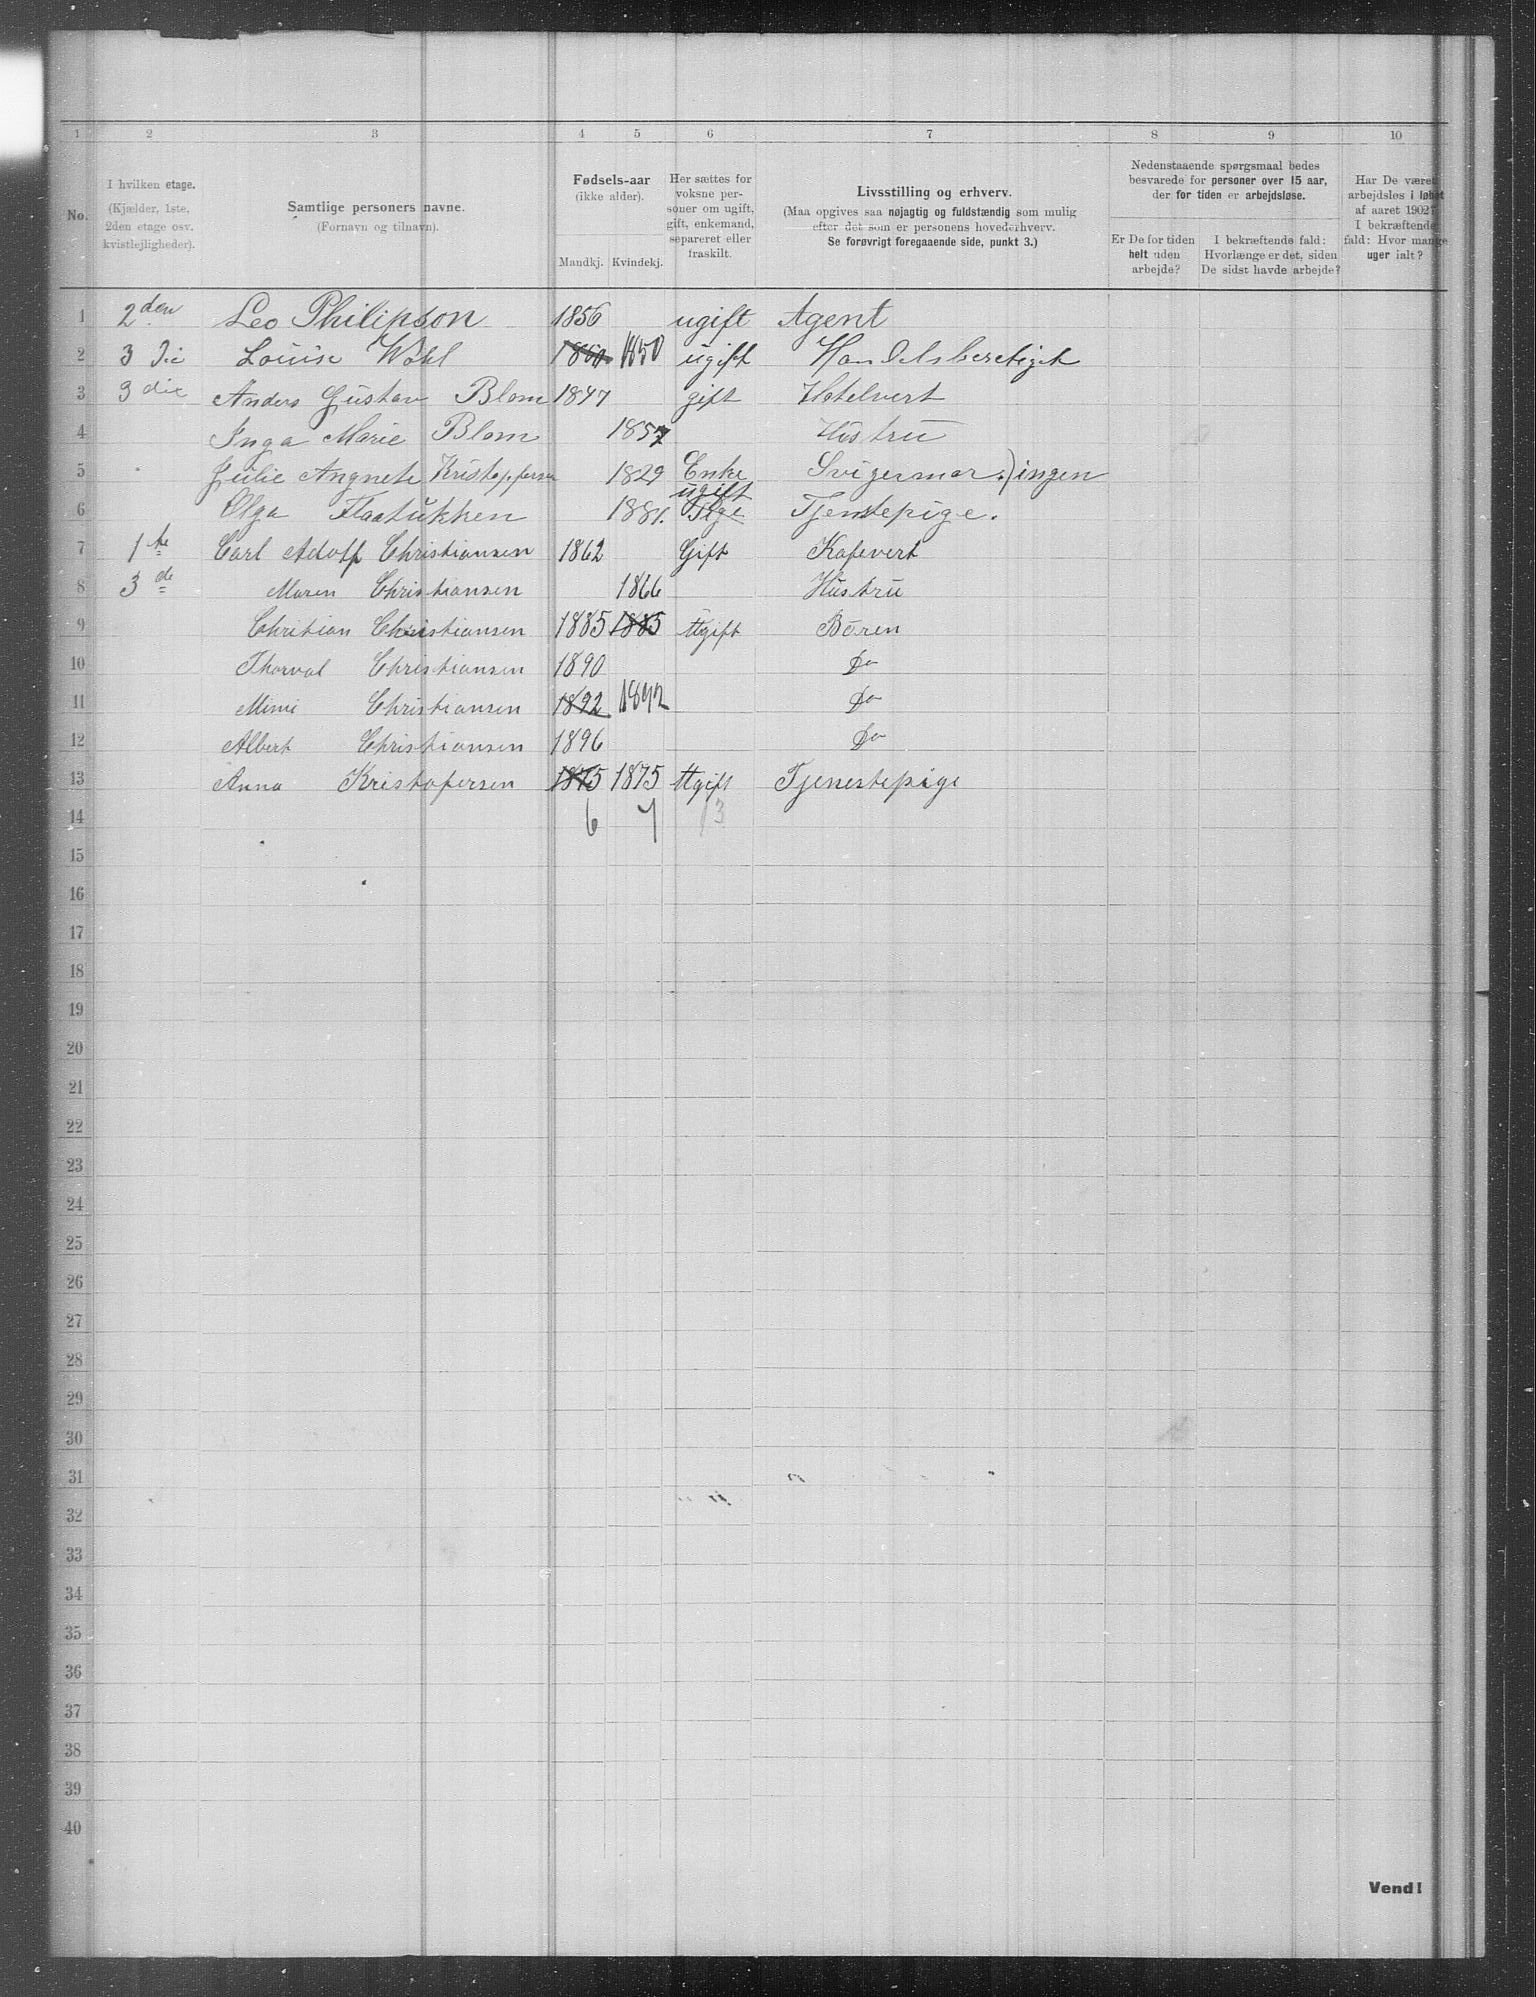 1 2 3 4 5 6 7 8 9 10
No.
I hvilken etage.
(Kjælder, 1ste,
2den etage osv.
kvistlejligheder).
Samtlige personers navne.
(Fornavn og tilnavn).
Fødsels-aar
(ikke alder).
Mandkj. Kvindekj.
Her sættes for
voksne per-
soner om ugift,
gift, enkemand,
separeret eller
fraskilt.
Livsstilling og erhverv.
(Maa opgives saa nøjagtig og fuldstændig som mulig
efter det som er personens hovederhverv.
Se forøvrigt foregaaende side, punkt 3.)
Nedenstaaende spørgsmaal bedes
besvarede for personer over 15 aar,
der for tiden er arbejdsløse.
Er De for tiden
helt uden
arbejde?
I bekræftende fald:
Hvorlænge er det, siden
De sidst havde arbejde?
Har De været
arbejdsløs i løbet
af aaret 1902?
I bekræftende
fald: Hvor mange
uger ialt?
1 2den Leo Philipson 1856 ugift Agent
2 3die Louise Wohl 1850 1850 ugift Handelsberetiget
3 3die Anders Gustav Blom 1847 gift Hotelvert
4 Inga Marie Blom 1857 Hustru
5 Julie Angnete Kristoffersen 1829 Enke Svigermor.) ingen
6 Olga 1881. ugift Pige Tjenstepige.
7 1te Carl Adolf Christiansen 1862 Gift Kafevert
8 3de Maren Christiansen 1866 Hustru
9 Chritian Christiansen 1885 1885 Ugift Bören
10 Thorval Christiansen 1890 Do
11 Mimi Christiansen 1892 1892 Do
12 Albert Christiansen 1896 Do
13 Anna Kristofersen 1875 1875 Ugift Tjenestepige
14 6 7 13
15
16
17
18
19
20
21
22
23
24
25
26
27
28
29
30
31
32
33
34
35
36
37
38
39
40
Vend!